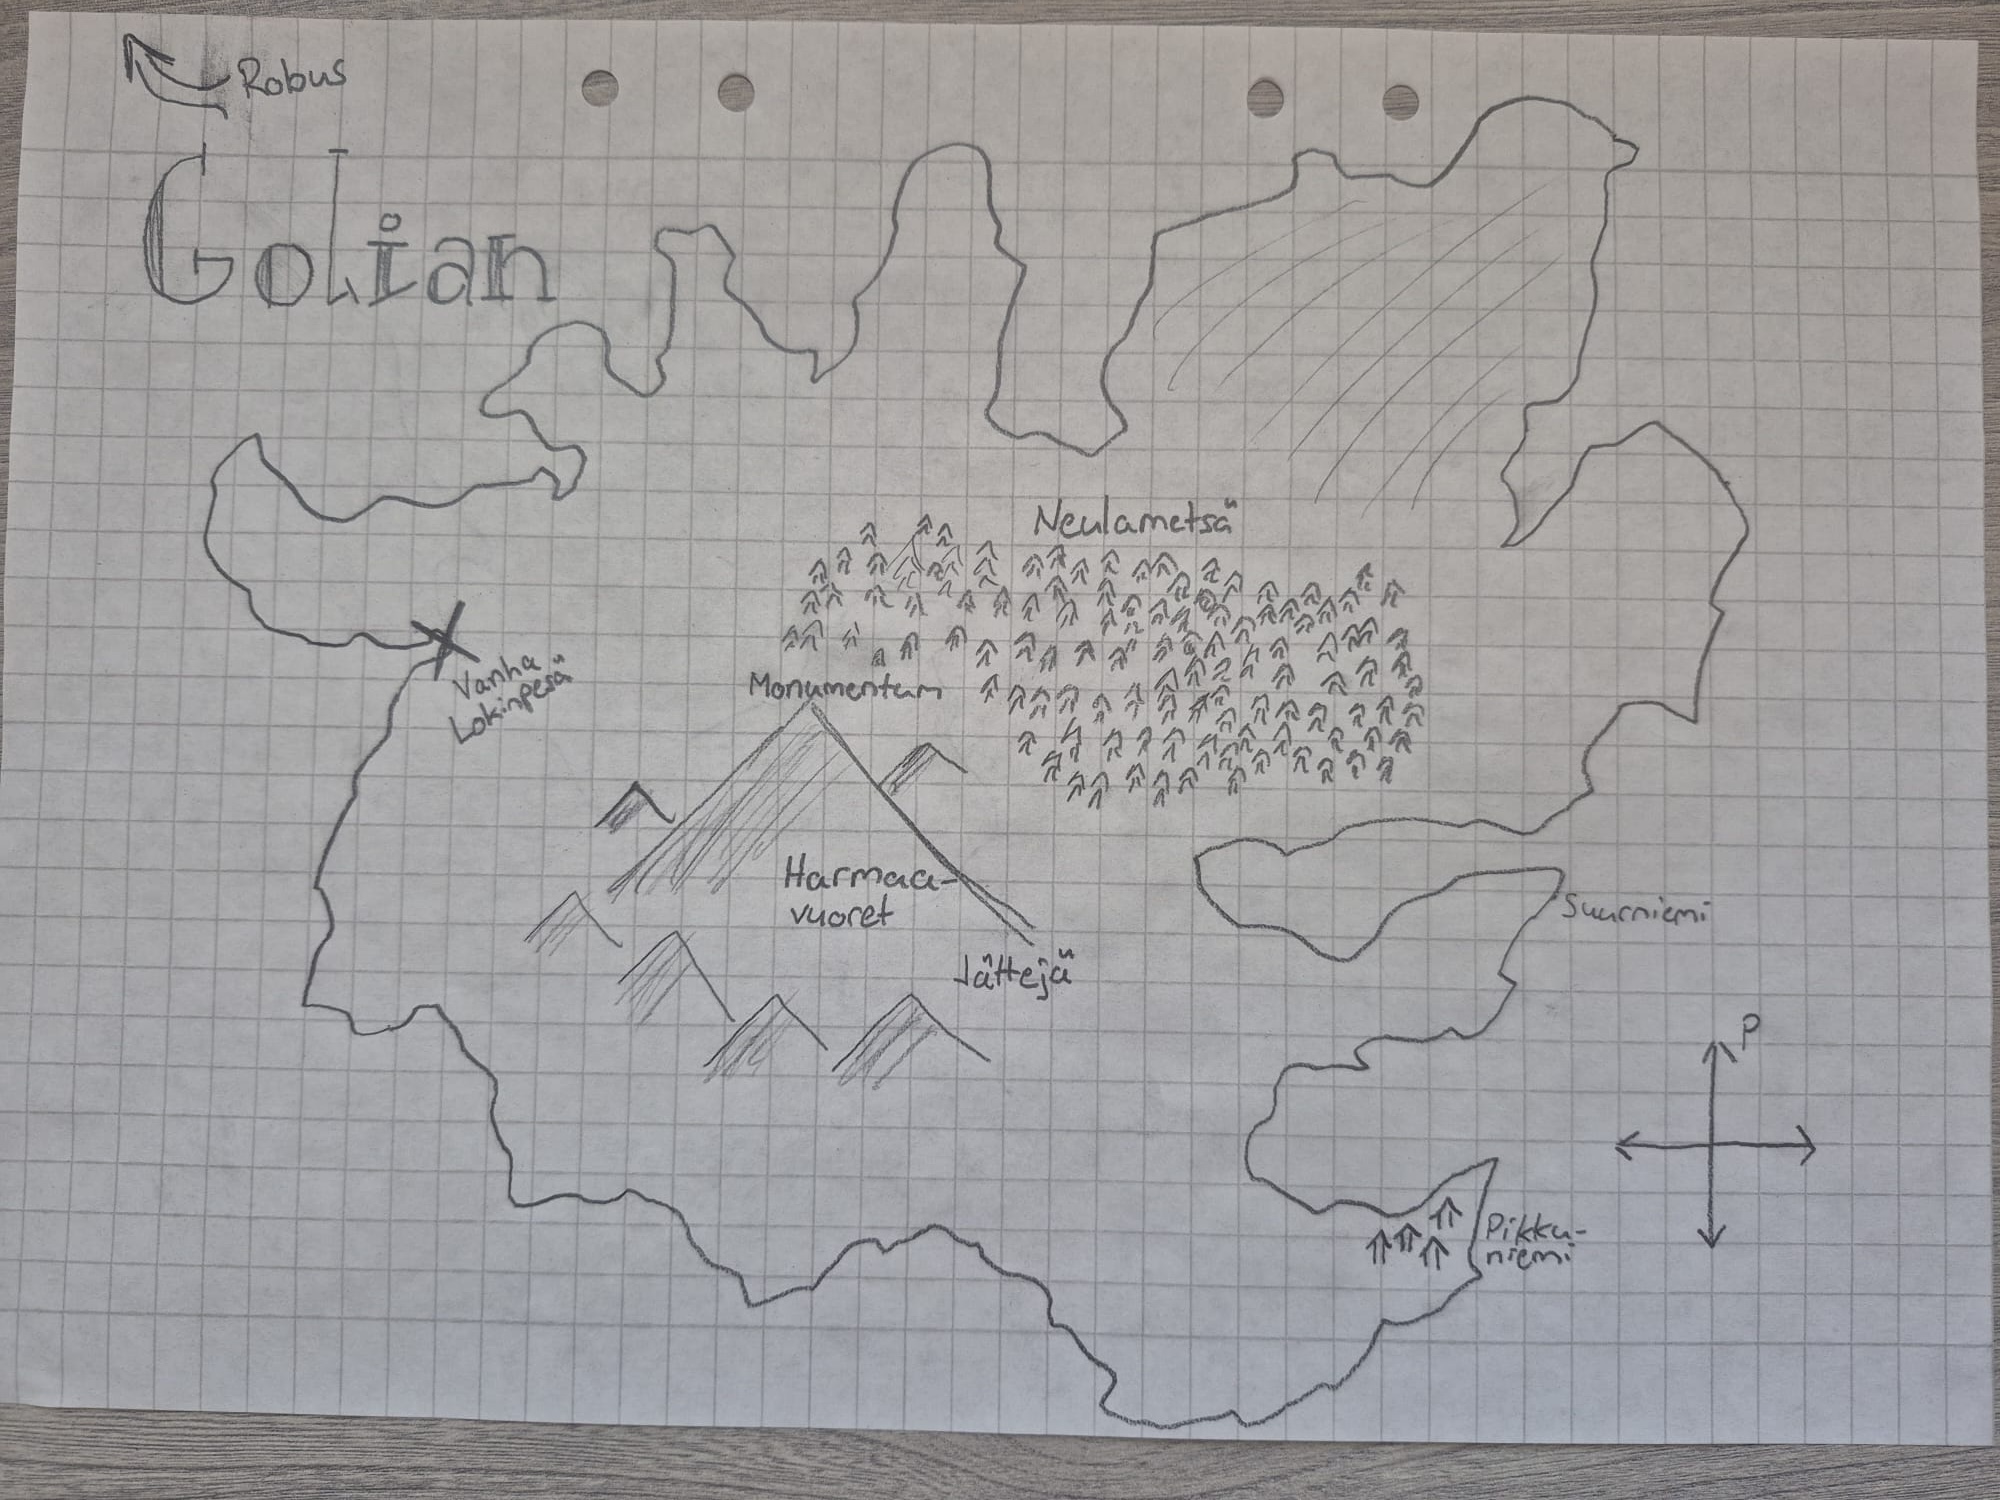 Robus
Golian
Neulametsä
Vanha
Lokinpesä
Monumentum
Harmaa-
vuoret
Suurniemi
Jättejä
P
Pikku-
niemi